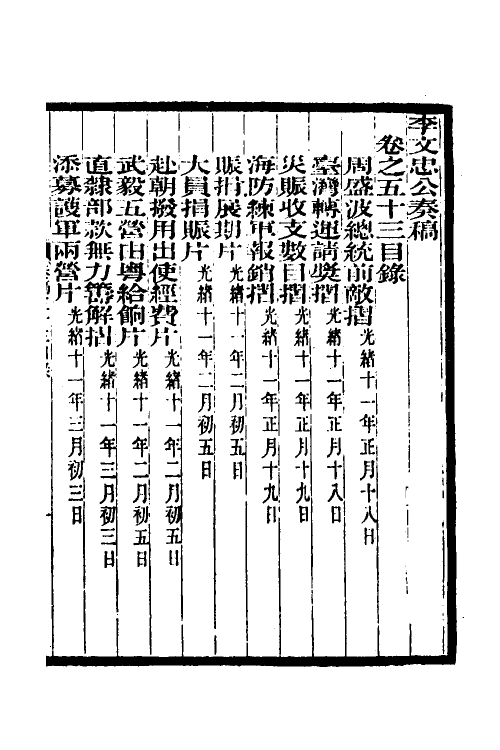 李文忠公奏稿
卷之五十三目錄
周盛波總統前敵摺光緒十一年正月十八日
臺灣轉運請獎摺光緒十一年正月十八日
災賑收支數目摺光緒十一年正月十九日
海防練軍報銷摺光緒十一年正月十九日
賑捐展期片光緒十一年二月初五日
大員捐賑片光緒十一年二月初五日
赴朝撥用出使經費片光緒十一年二月初五日
武毅五營由粵給餉片光緒十一年二月初五日
直隸部款無力籌解摺光緒十一年三月初三日
添募護軍兩營片光緒十一年三月初三日